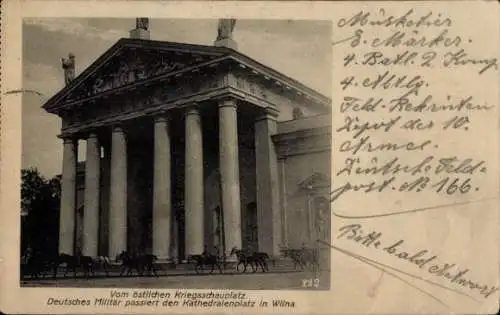 Musketier
E. Märker.
4. Batl. 2 Komp.
4. Abtlg.
Feld-Rekruten
Depot der 10.
Armee.
Deutsche Feld-
post. No 166.
Bitte bald Antwort
Vom östlichen Kriegsschauplatz.
Deutsches Militär passiert den Kathedralenplatz in Wilna.